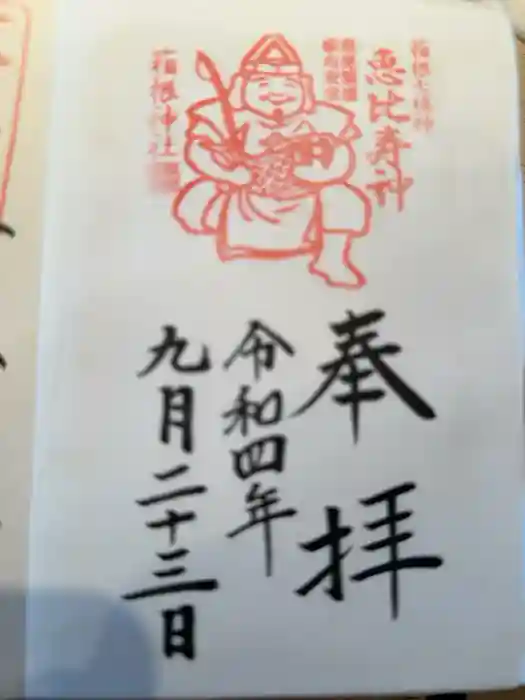 箱根七福神
恵比寿神
箱根神社
奉拝
令和四年
九月二十三日